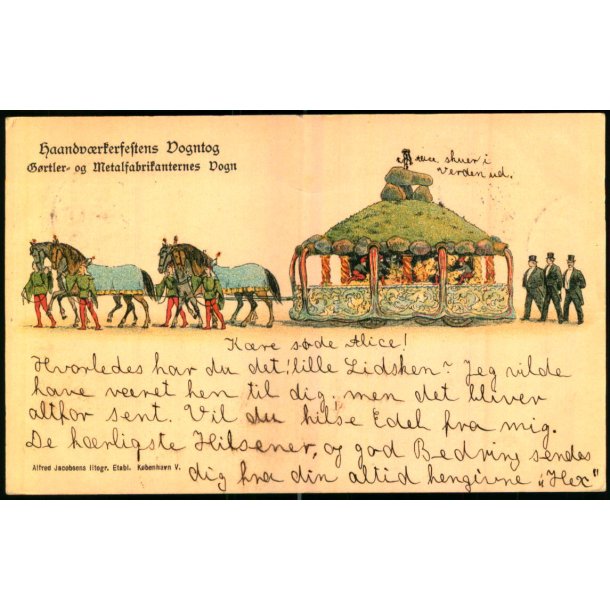 Haandværkerfestens Vogntog
Gørtler- og Metalfabrikanternes Vogn
skuer i
Verden ud.
Kære søde Alice!
Hvorledes har du det, lille Lidsken? Jeg vilde
have været hen til dig, men det bliver
altfor sent. Vil du hilse Edel fra mig.
De kærligste Hilsener, og god Bedring sendes
dig fra din altid hengivne „Hex"
Alfred Jacobsens litogr. Etabl. København V.